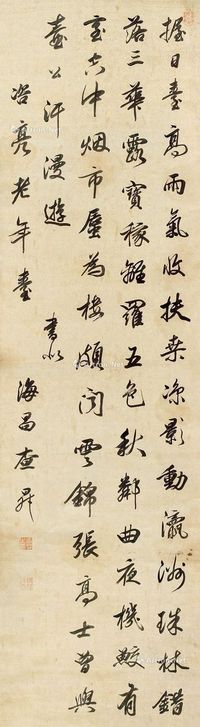 握日臺高雨氣收扶桑涼影動瀛洲珠林錯
落三華露寶稼離羅五色秋鄰曲夜機鮫有
室空中烟市蜃為樓頗聞雲錦張高士曾與
盧公汗漫遊
書似
冶亮老年臺
海昌查昇